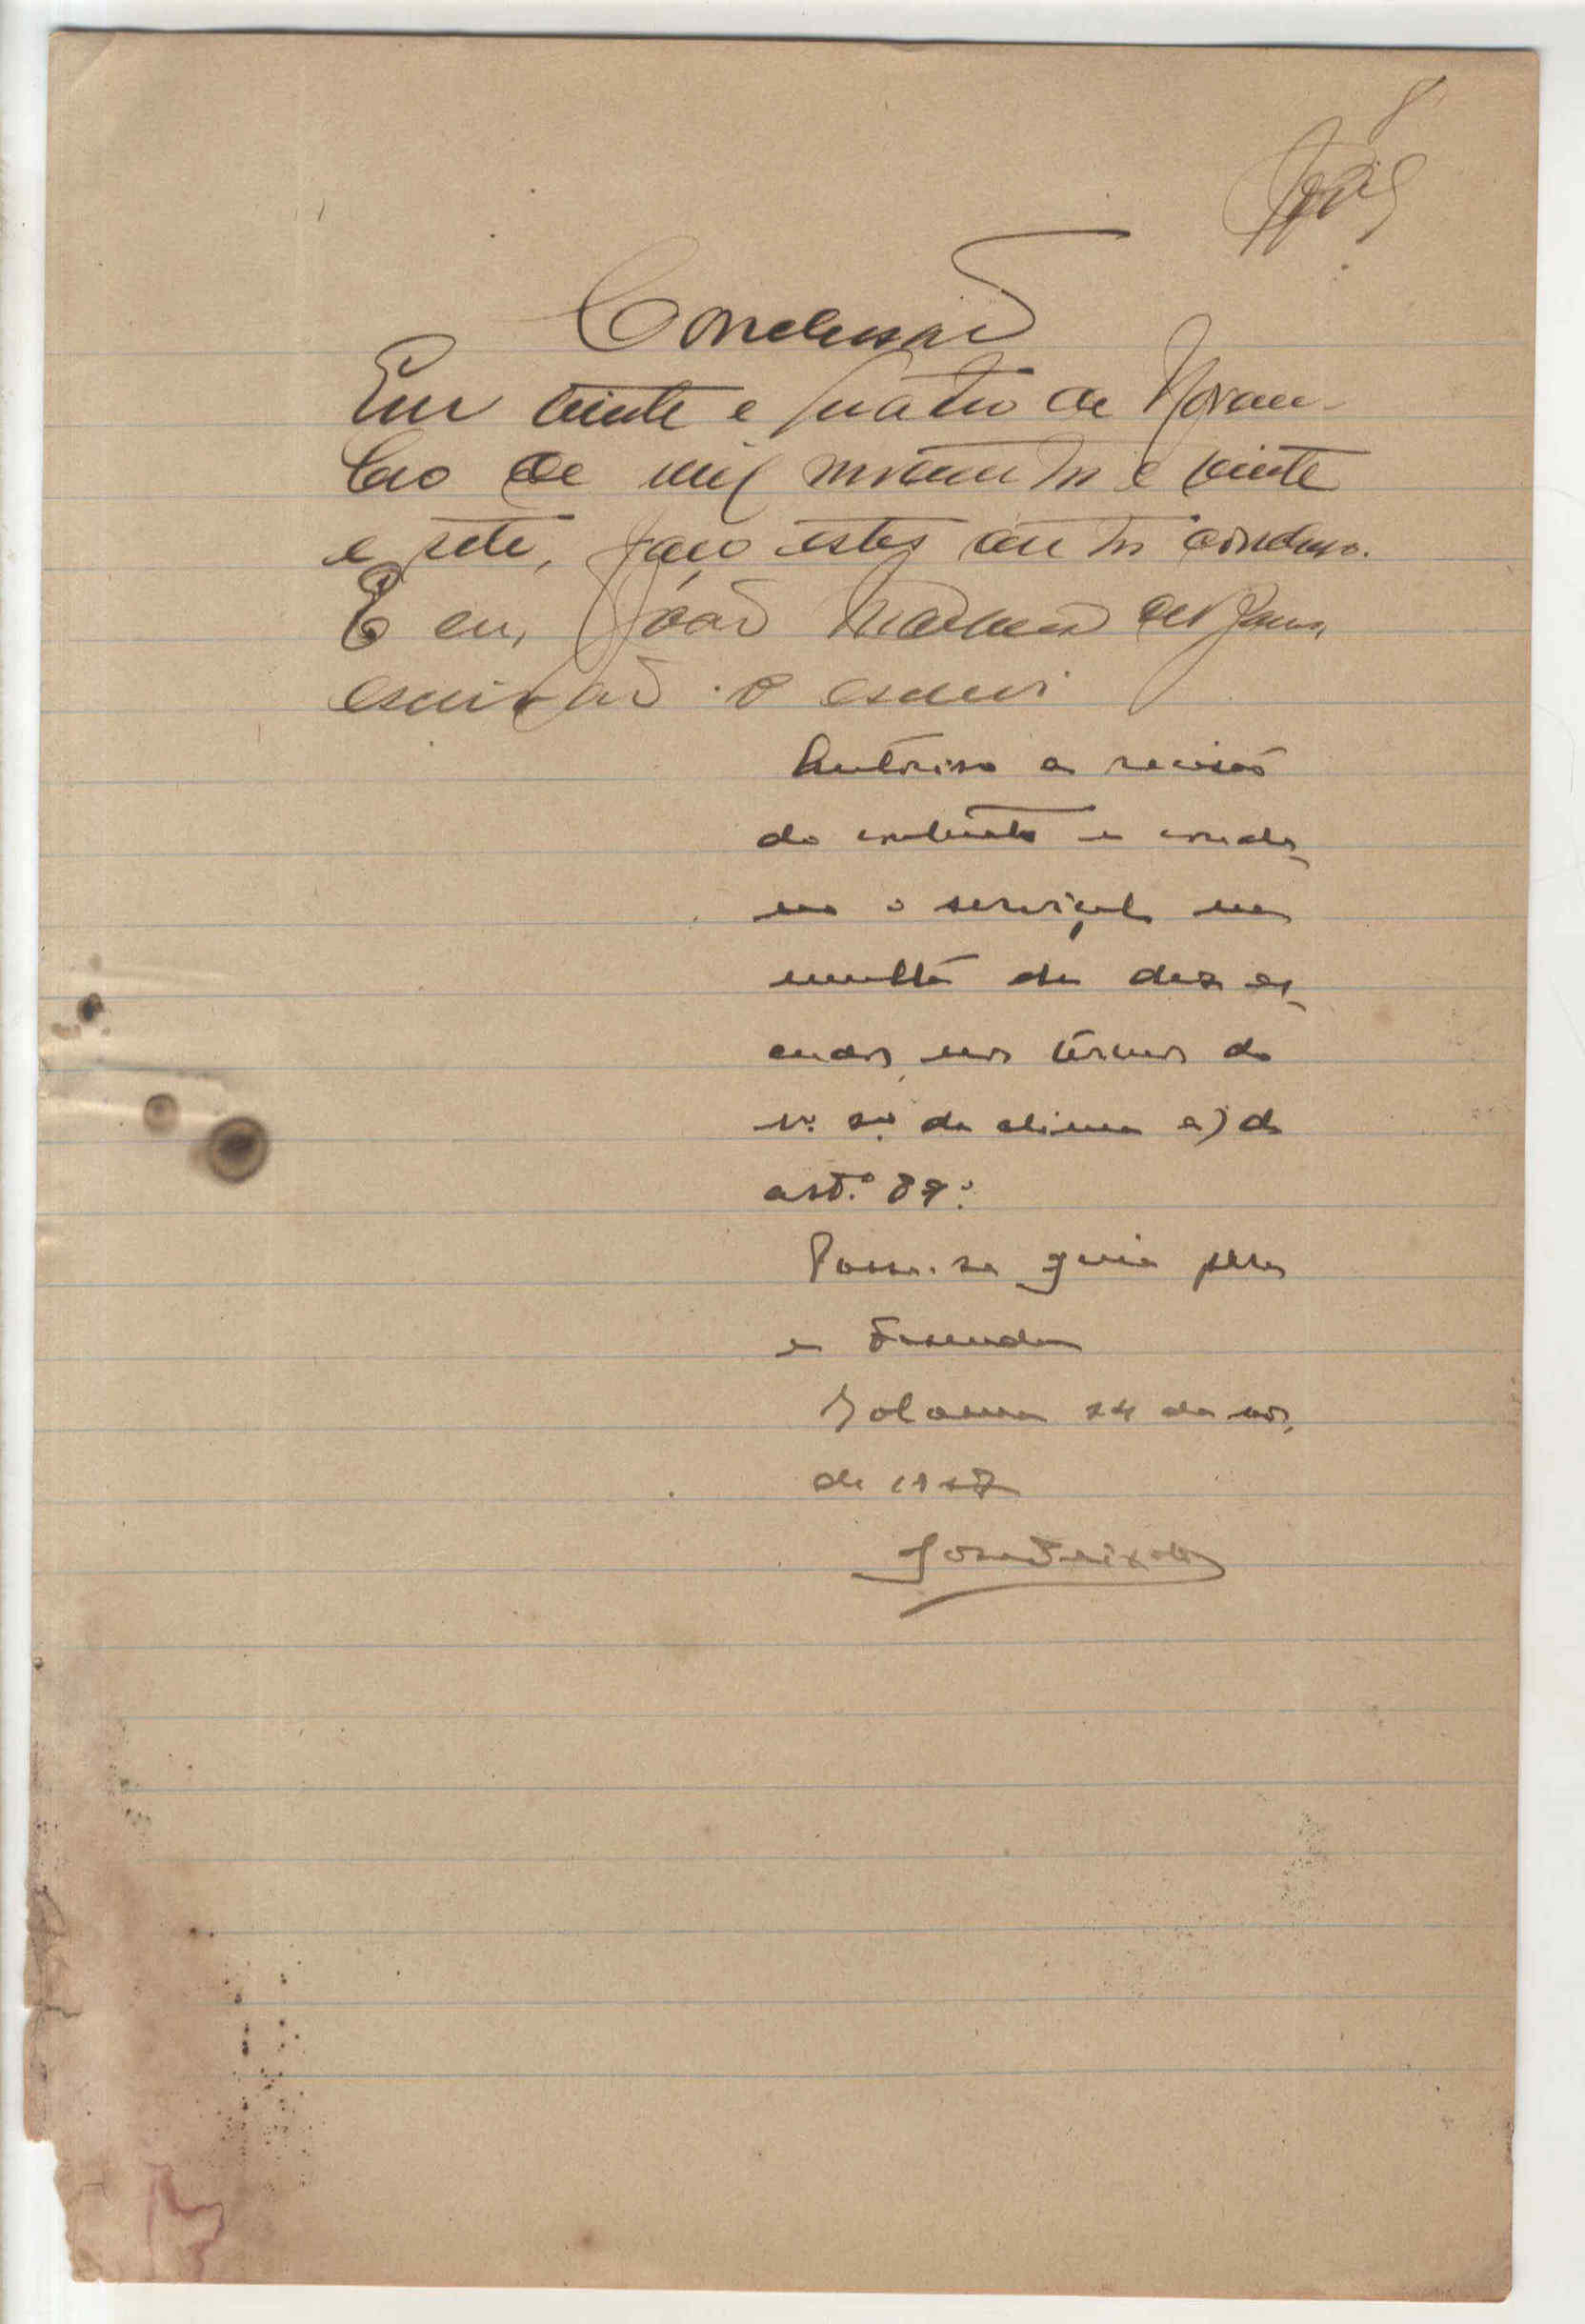 8
Conclusão
Em vinte e quatro de Novem-
bro de mil novecentos e vinte
e sete, faço estes autos conclusos.
E eu, João
escrivão o escrevi
Autoriso a recisão
do contrato e conde-
no o serviçal na
multa de dez es-
cudos, nos termos do
nº 2º da alinea a) do
artº 87º
Passe-se guia para
a Fazenda
Bolama 24 de nov.
de 1927
José Peixoto